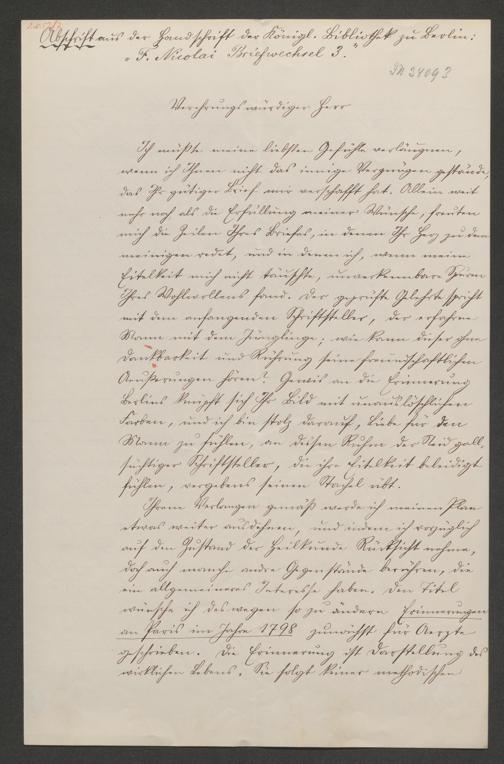 Abschrift aus der Handschrift der Königl. Bibliothek zu Berlin:
"F. Nicolai Briefwechsel 3."
Verehrungswürdiger Herr
Ich müßte meine liebsten Gefühle verläugnen,
wenn ich Ihnen nicht das innige Vergnügen gestände,
das Ihr gütiger Brief mir verschafft hat. Allein weit
mehr noch als die Erfüllung meiner Wünsche, freuten
mich die Zeilen Ihres Briefes, in denen Ihr Herz zu dem
meinigen redet, und in denen ich, wenn meine
Eitelkeit mich nicht täuschte, unverkennbare Spuren
Ihres Wohlwollens fand. Der geprüfte Gelehrte spricht
mit dem anfangenden Schriftsteller, der erfahrne
Mann mit dem Jünglinge; wie kann dieser ohne
Dankbarkeit und Rührung seine freundschaftlichen
Aeußerungen hören? Gewis an die Erinnerung
Berlins knüpft sich Ihr Bild mit unauslöschlichen
Farben, und ich bin stolz darauf, Liebe für den
Mann zu fühlen, an dessen Ruhm der Neid gall,,
süchtiger Schriftsteller, die ihre Eitelkeit beleidigt
fühlen, vergebens seinen Stachel übt.
Ihrem Verlangen gemäß werde ich meinen Plan
etwas weiter ausdehnen, und indem ich vorzüglich
auf den Zustand der Heilkunde Rücksicht nehme,
doch auch manche andre Gegenstände berühren, die
ein allgemeineres Interesse haben. Den Titel
wünsche ich deswegen so zu ändern Erinnerungen
an Paris im Jahre 1798 zunächst für Aerzte
geschrieben. Die Erinnerung ist Darstellung des
wirklichen Lebens. Sie folgt keiner methodischen